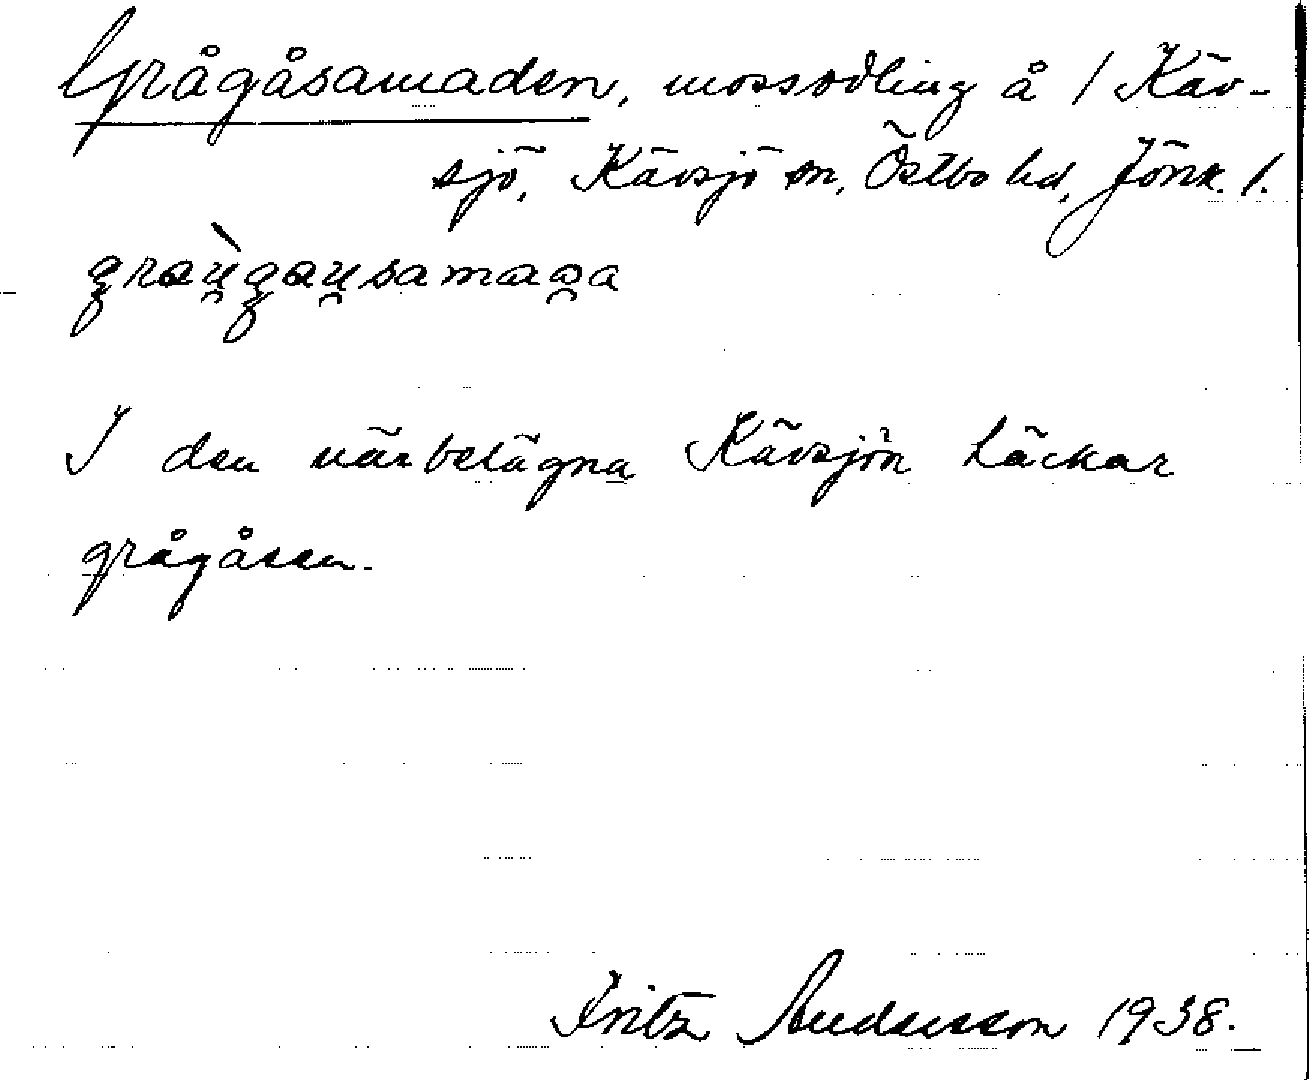 Grågåsamaden, mossodling å 1 Käv-
sjö, Kävsjö sn, Östbo hd, Jönk. l.
I den närbelägna Kävsjön häckar
grågåsen.
Fritz Andersson 1938.